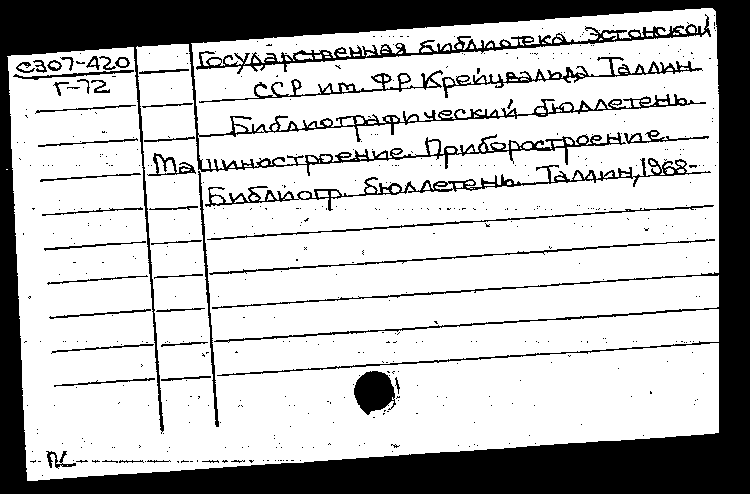 С307-420
Г-72
Государственная библиотека Эстонской
ССР им. Ф.Р. Крейцвальда. Таллин.
Библиографический бюллетень.
Машиностроение. Приборостроение.
Библиогр. бюллетень. Таллин, 1968-